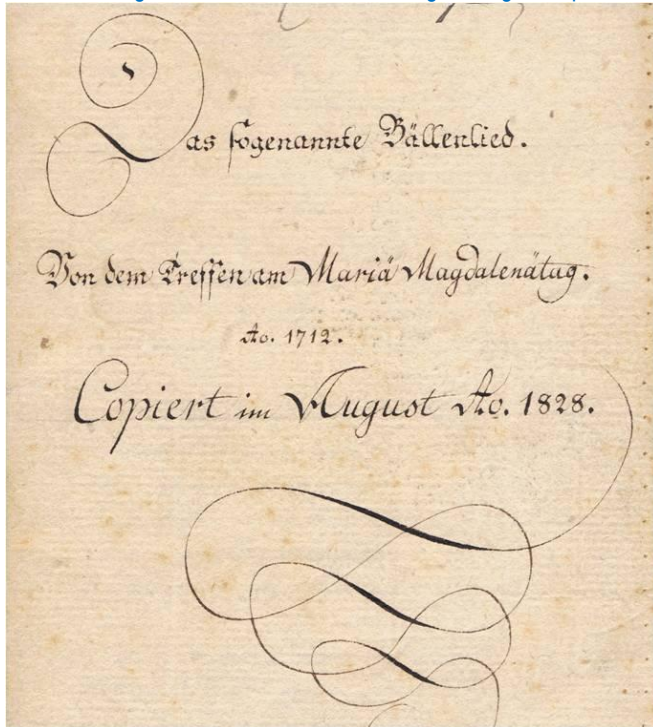 Das sogenannte Bällenlied.
Von dem Treffen am Mariä Magdalenätag.
Ao. 1712.
Copiert im August Ao. 1828.